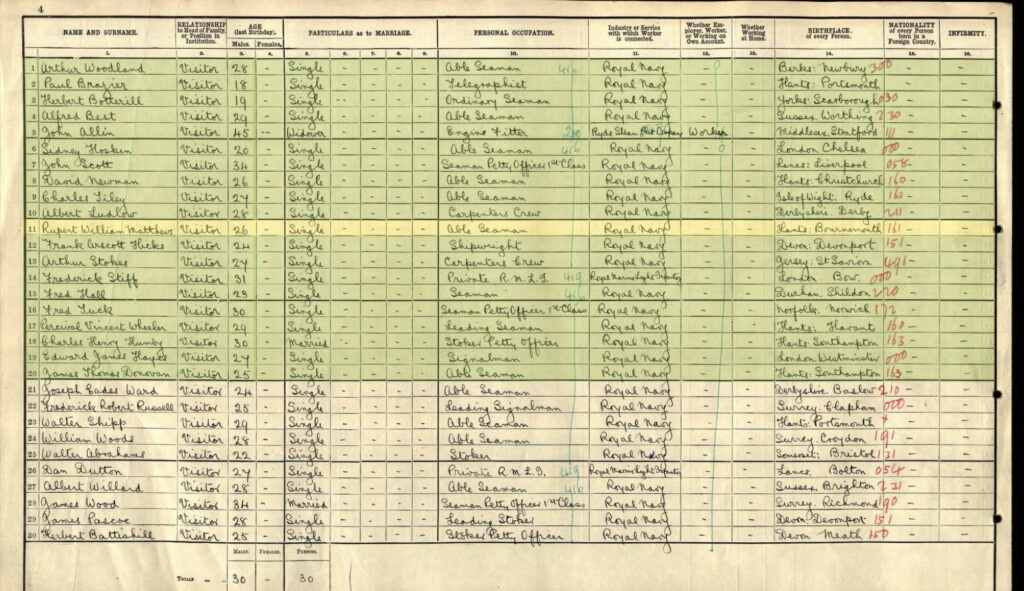 4
NAME AND SURNAME. RELATIONSHIP to Head of Family, or Position in Institution. AGE (last Birthday). PARTICULARS as to MARRIAGE. PERSONAL OCCUPATION. Industry or Service with which Worker is connected. Whether Employer, Worker, or Working on Own Account. Whether Working at Home. BIRTHPLACE of every Person. NATIONALITY of every Person born in a Foreign Country. INFIRMITY.
Males. Females.
1. 2. 3. 4. 5. 6. 7. 8. 9. 10. 11. 12. 13. 14. 15. 16.
1 Arthur Woodland Visitor 28 - Single - - - - Able Seaman 416 Royal Navy - 0 - Berks: Newbury 300 - -
2 Paul Brazier Visitor 18 - Single - - - - Telegraphist Royal Navy - - Hants: Portsmouth - -
3 Herbert Botterill Visitor 19 - Single - - - - Ordinary Seaman Royal Navy - - Yorks: Scarborough 030 - -
4 Alfred Best Visitor 29 - Single - - - - Able Seaman Royal Navy - - Sussex. Worthing 230 - -
5 John Allin Visitor 45 - Widower - - - - Engine Fitter 200 Ryde Steam Company Worker - Middlesex. Stratford 111 - -
6 Sidney Hosken Visitor 20 - Single - - - - Able Seaman 416 Royal Navy - 0 - London Chelsea 000 - -
7 John Scott Visitor 34 - Single - - - - Seaman Petty Officer 1st Class Royal Navy - - Lancs: Liverpool 058 - -
8 David Newman Visitor 26 - Single - - - - Able Seaman Royal Navy - - Hants: Christchurch 160 - -
9 Charles Tiley Visitor 27 - Single - - - - Able Seaman Royal Navy - - Isle of Wight. Ryde 160 - -
10 Albert Ludlow Visitor 28 - Single - - - - Carpenters Crew Royal Navy - - Derbyshire. Derby 211 - -
11 Rupert William Matthews Visitor 26 - Single - - - - Able Seaman Royal Navy - - Hants: Bournemouth 161 - -
12 Frank Arscott Hicks Visitor 24 - Single - - - - Shipwright Royal Navy - - Devon. Devonport 151 - -
13 Arthur Stokes Visitor 27 - Single - - - - Carpenters Crew Royal Navy - - Jersey. St Saviors 496 - -
14 Frederick Stiff Visitor 31 - Single - - - - Private R.M.L.I. 419 Royal Marine Light Infantry - - London Bow. 000 - -
15 Fred Hall Visitor 23 - Single - - - - Seaman 416 Royal Navy - - Durham. Shildon 020 - -
16 Fred Tuck Visitor 30 - Single - - - - Seaman Petty Officer 1st Class Royal Navy - - Norfolk. Norwich 172 - -
17 Percival Vincent Wheeler Visitor 29 - Single - - - - Leading Seaman Royal Navy - - Hants: Havant 160 - -
18 Charles Henry Humby Visitor 30 - Married - - - - Stoker Petty Officer Royal Navy - - Hants. Southampton 163 - -
19 Edward James Hayes Visitor 27 - Single - - - - Signalman Royal Navy - - London Westminster 000 - -
20 James Thomas Donovan Visitor 25 - Single - - - - Able Seaman Royal Navy - - Hants: Southampton 163 - -
21 Joseph Eades Ward Visitor 24 - Single - - - - Able Seaman Royal Navy - - Derbyshire. Baslow 210 - -
22 Frederick Robert Russell Visitor 25 - Single - - - - Leading Signalman Royal Navy - - Surrey. Clapham 000 - -
23 Walter Shipp Visitor 29 - Single - - - - Able Seaman Royal Navy - - Hants: Portsmouth - -
24 William Woods Visitor 28 - Single - - - - Able Seaman Royal Navy - - Surrey. Croydon 191 - -
25 Walter Abrahams Visitor 22 - Single - - - - Stoker Royal Navy - - Somerset: Bristol 131 - -
26 Dan Dutton Visitor 27 - Single - - - - Private R.M.L.I. 419 Royal Marine Light Infantry - - Lancs. Bolton 054 - -
27 Albert Willard Visitor 28 - Single - - - - Able Seaman 416 Royal Navy - - Sussex. Brighton 231 - -
28 James Wood Visitor 34 - Married - - - - Seaman Petty Officer 1st Class Royal Navy - - Surrey. Richmond 190 - -
29 James Pascoe Visitor 28 - Single - - - - Leading Stoker Royal Navy - - Devon. Devonport 151 - -
30 Herbert Battishill Visitor 25 - Single - - - - Stoker Petty Officer Royal Navy - - Devon Meath 150 - -
Males. Females. Persons.
TOTALS - - 30 - 30